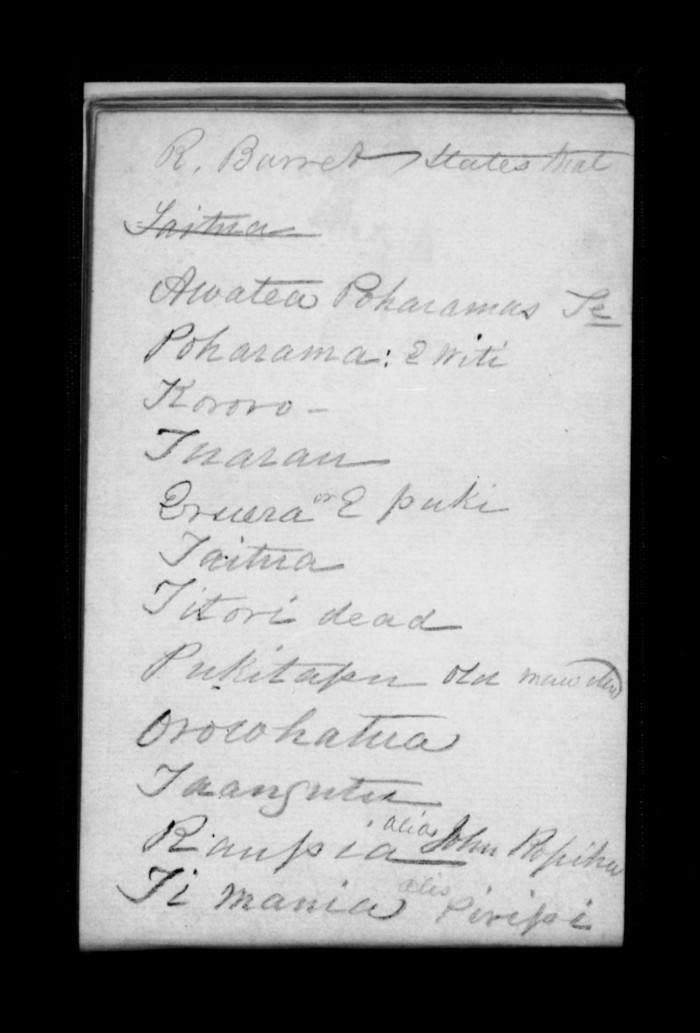 R. Barret states that
Taitua
Awatea Poharamas Te
Poharama: E Witi
Kororo -
Tuarau
Eruera or E puki
Taitua
Titori dead
Pukitapu old man dead
Orowhatua
Taangutu
Raupia alias John Ropiha
Ti mania alis Piripi